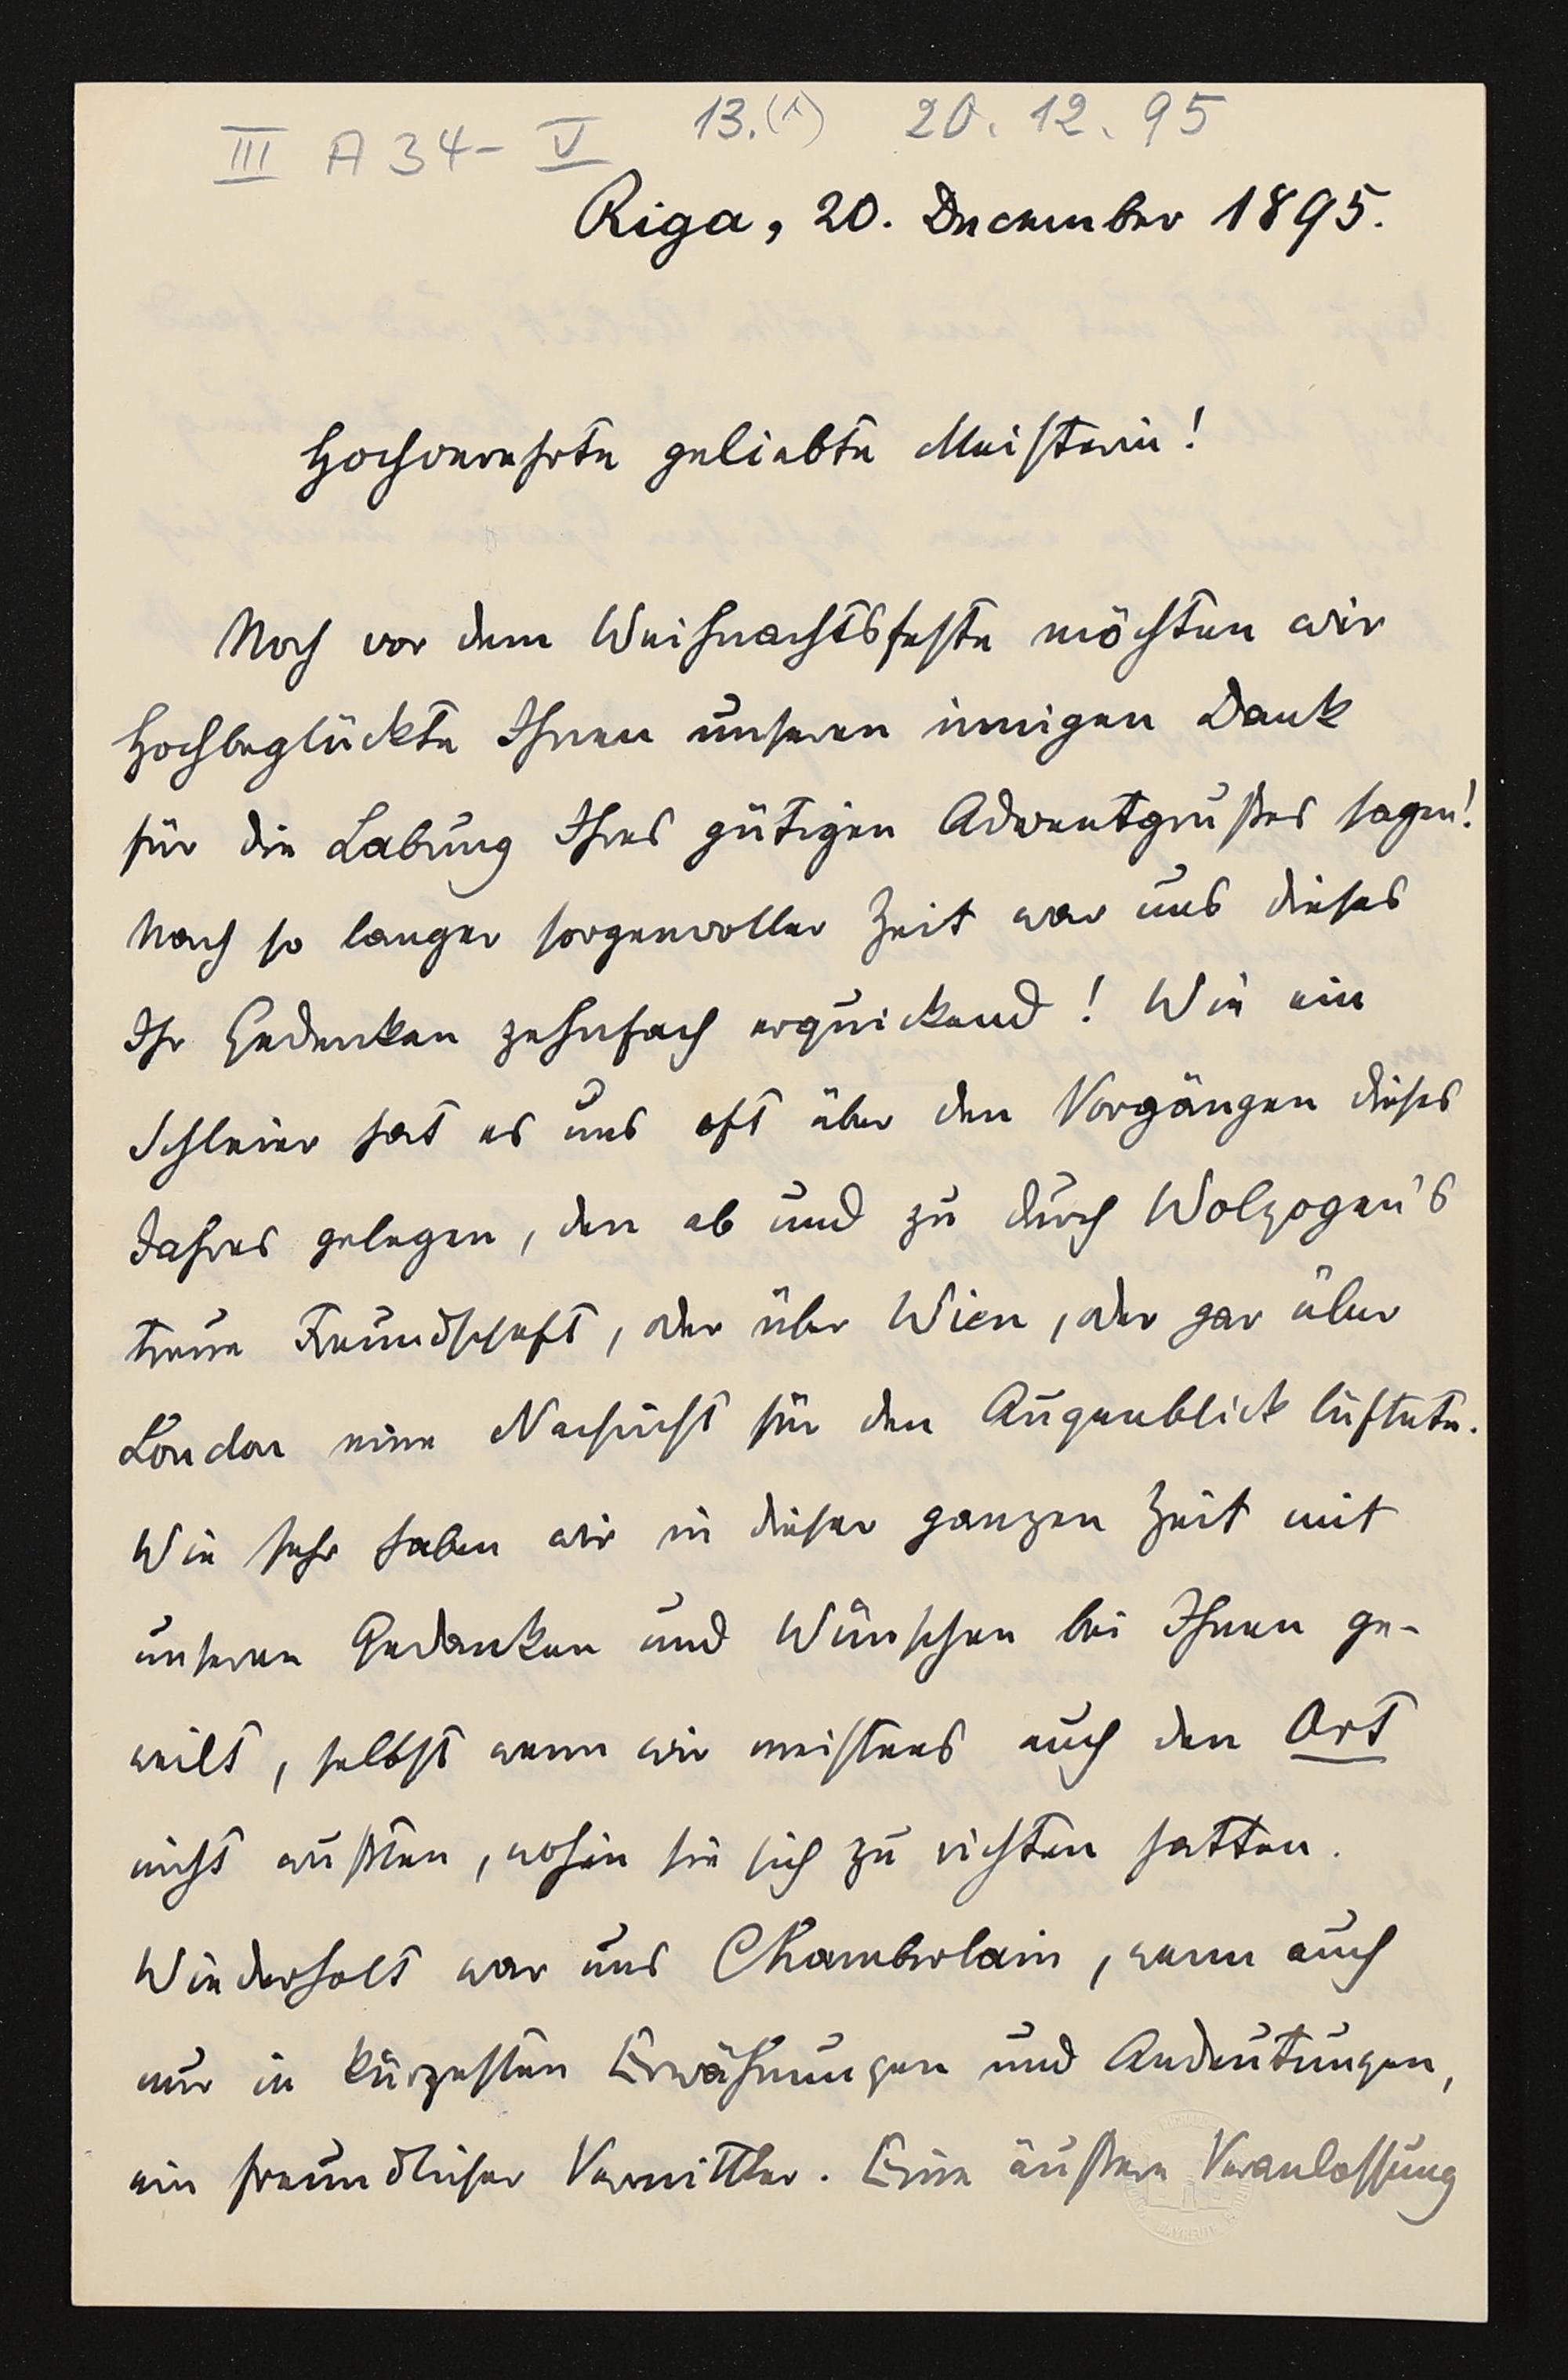 III A 34 - V 13.(1) 20. 12. 95
Riga, 20. December 1895.
Hochverehrte geliebte Meisterin!
Noch vor dem Weihnachtsfeste möchten wir
Hochbeglückte Ihnen unseren innigen Dank
für die Labung Ihres gütigen Adventgrußes sagen!
Nach so langer sorgenvoller Zeit war uns dieses
Ihr Gedenken zehnfach erquickend! Wie ein
Schleier hat es uns oft über den Vorgängen dieses
Jahres gelegen, den ab und zu durch Wolzogen's
treue Freundschaft, oder über Wien, oder gar über
London eine Nachricht für den Augenblick lüftete.
Wie sehr haben wir in dieser ganzen Zeit mit
unseren Gedanken und Wünschen bei Ihnen ge-
weilt, selbst wenn wir meistens auch den Ort
nicht wußten, wohin sie sich zu richten hatten.
Wiederholt war uns Chamberlain, wenn auch
nur in kürzesten Erwähnungen und Andeutungen,
ein freundlicher Vermittler. Eine äußere Veranlassung